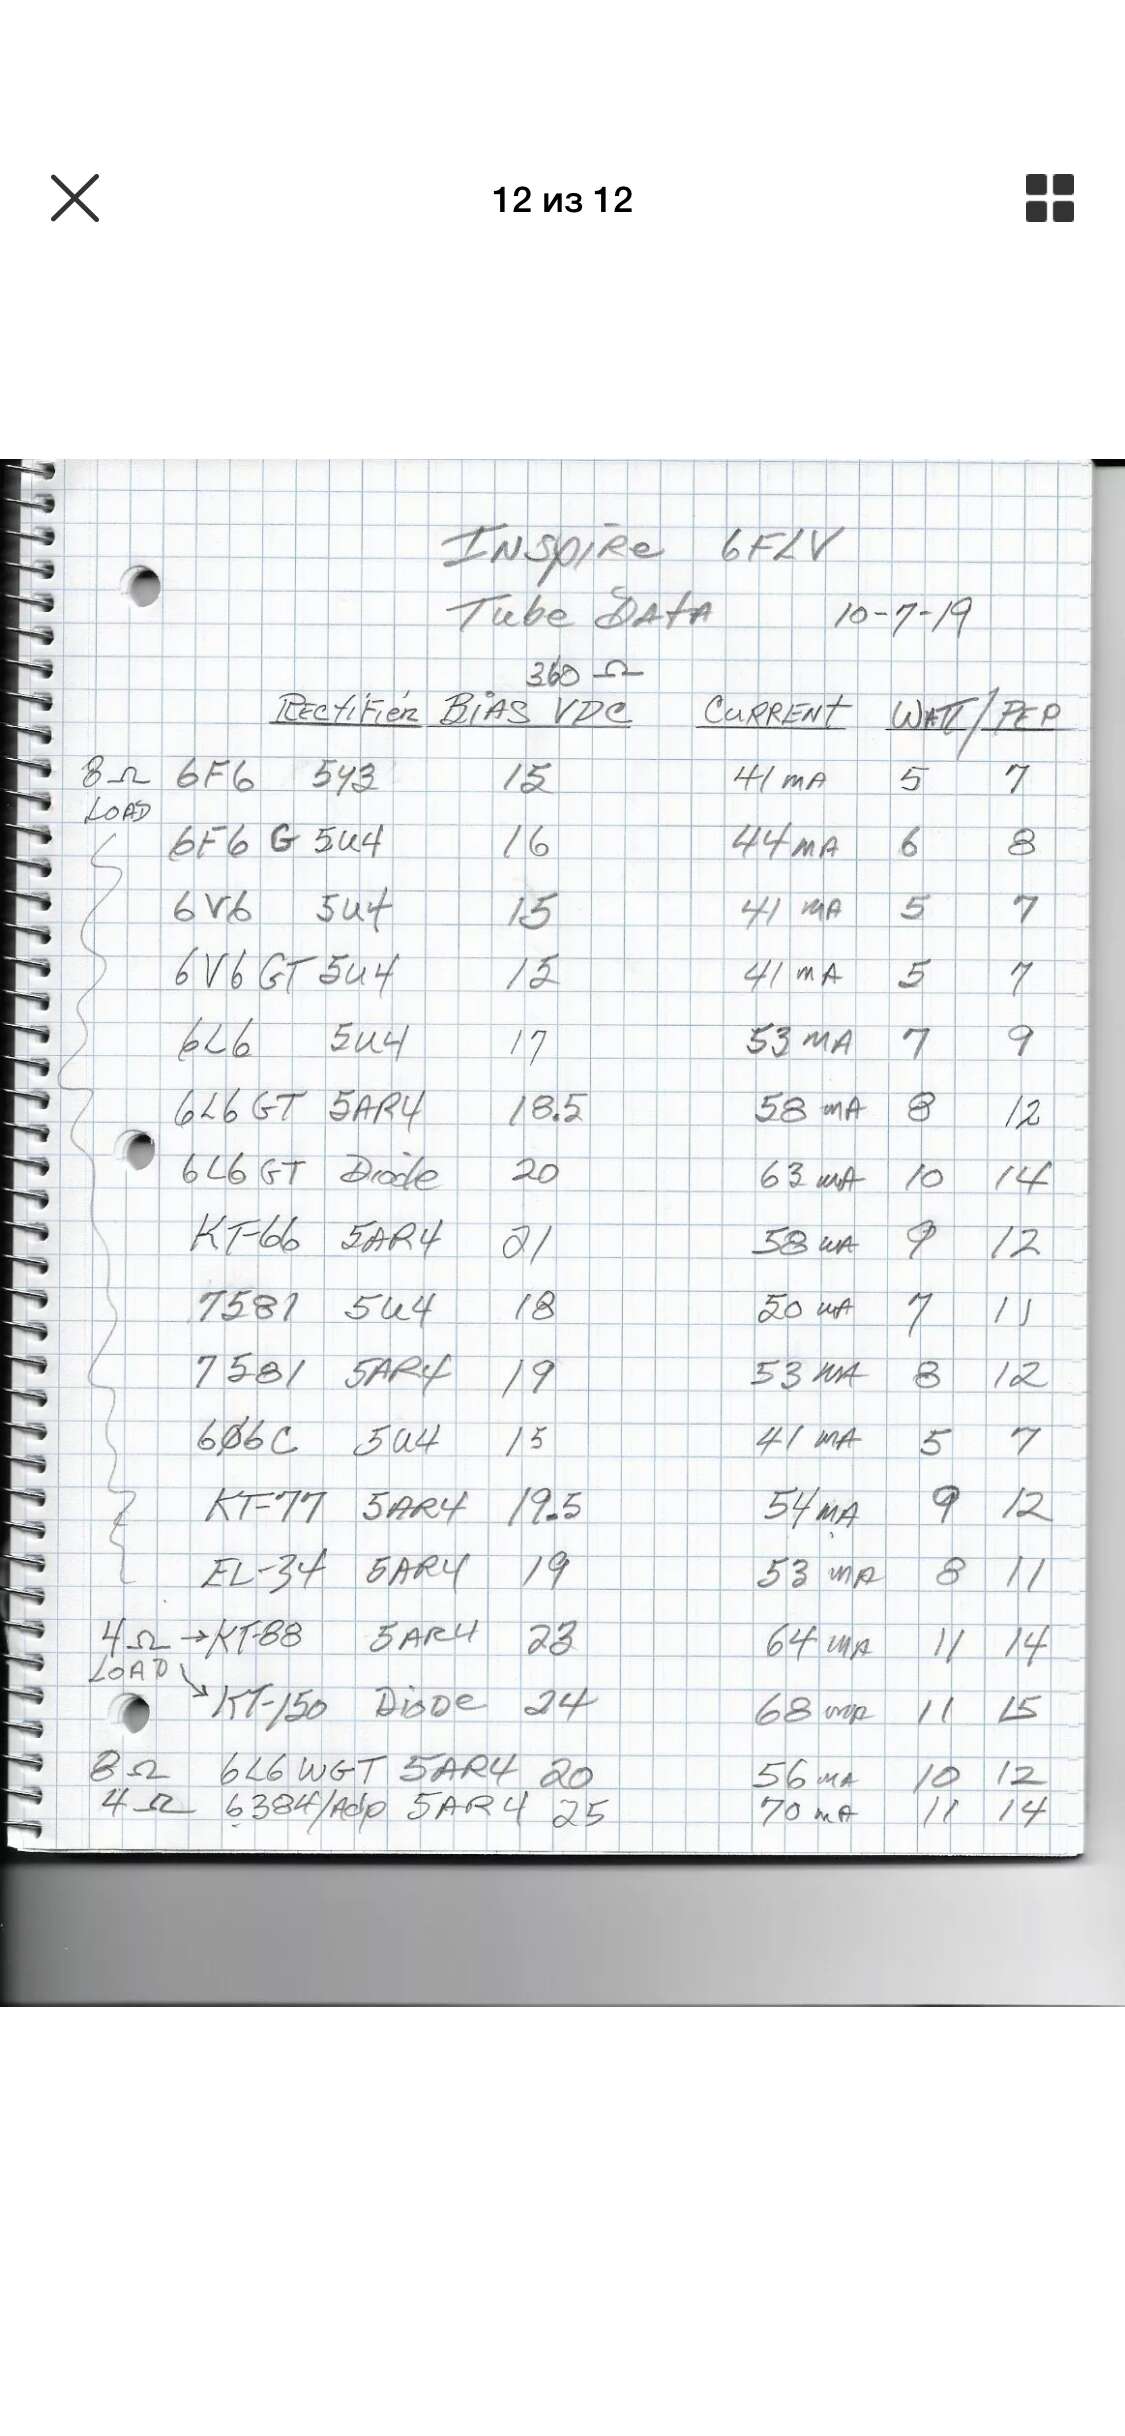 12 из 12
Inspire 6FLV
Tube Data 10-7-19
360 Ω
Rectifier Bias VDC Current Watt/PEP
8Ω 6F6 5Y3 15 41 mA 5 7
LOAD
6F6 G 5U4 16 44 mA 6 8
6V6 5U4 15 41 mA 5 7
6V6 GT 5U4 15 41 mA 5 7
6L6 5U4 17 53 mA 7 9
6L6 GT 5AR4 18.5 58 mA 8 12
6L6 GT Diode 20 63 mA 10 14
KT-66 5AR4 21 58 mA 9 12
7581 5U4 18 50 mA 7 11
7581 5AR4 19 53 mA 8 12
6Ø6C 5U4 15 41 mA 5 7
KT-77 5AR4 19.5 54 mA 9 12
EL-34 5AR4 19 53 mA 8 11
4Ω → KT-88 5AR4 23 64 mA 11 14
LOAD
KT-150 Diode 24 68 mA 11 15
8Ω 6L6 WGT 5AR4 20 56 mA 10 12
4Ω 6384/Adp 5AR4 25 70 mA 11 14